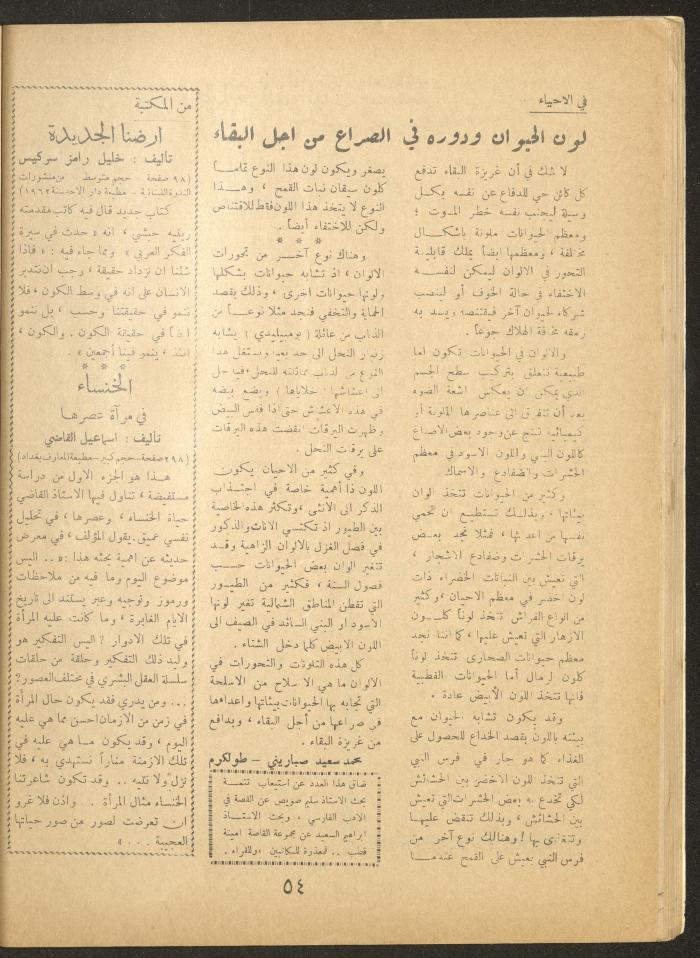 في الاحياء
لون الحيوان ودوره في الصراع من اجل البقاء
لا شك في أن غريزة البقاء تدفع
كل كائن حي للدفاع عن نفسه بكل
وسيلة ليجنب نفسه خطر الموت ؛
ومعظم الحيوانات ملونة باشكال
مختلفة ، ومعظمها ايضاً يملك قابلية
التحور في الالوان ليمكن لنفسه
الاختفاء في حالة الخوف أو لينصب
شركاً لحيوان آخر فيقتنصه ويسد به
رمقه مخافة الهلاك جوعاً .
والالوان في الحيوانات تكون اما
طبيعية تتعلق بتركيب سطح الجسم
الذي يمكن ان يعكس اشعة الضوء
بعد أن تتفرق الى عناصرها الملونة أو
كيميائية تنتج عن وجود بعض الاصباغ
كاللون البني واللون الاسود في معظم
الحشرات والضفادع والاسماك
وكثير من الحيوانات تتخذ الوان
بيئاتها ، وبذلك تستطيع ان تحمي
نفسها من اعدائها ، فمثلا نجد بعض
يرقات الحشرات وضفادع الاشجار ،
التي تعيش بين النباتات الخضراء ذات
لون اخضر في معظم الاحيان ، وكثير
من انواع الفراش تتخذ لوناً كلون
الازهار التي تعيش عليها ، كما اننا نجد
معظم حيوانات الصحارى تتخذ لوناً
كلون لرمال أما الحيوانات القطبية
فانها تتخذ اللون الأبيض عادة .
وقد يكون تشابه الحيوان مع
بيئته باللون بقصد الخداع للحصول على
الغذاء كما هو جار في فرس النبي
التي تتخذ للون الاخضر بين الحشائش
لكي تخدع به بعض الحشرات التي تعيش
بين الحشائش ، وبذلك تنقض عليها
وتتغذى بها ! وهنالك نوع آخر من
فرس النبي يعيش على القمح عندما
يصفر ويكون لون هذا النوع تماماً
كلون سيقان نبات القمح ، وهذا
النوع لا يتخذ هذا اللون فقط للاقتناص
ولكن للاختفاء أيضاً .
* * *
وهناك نوع آخر من تحورات
الالوان ، اذ تشابه حيوانات بشكلها
ولونها حيوانات اخرى ، وذلك بقصد
الحماية والتخفي فنجد مثلا نوعاً من
الذباب من عائلة ( بومبيليدي ) يشابه
زنابير النحل الى حد بعيد ويستغل هذا
النوع من لذباب مماثلته للنحل فيدخل
الى اعشاشها ( خلاياها ) ويضع بيضه
في هذه الأعشاش حتى اذا فقس البيض
وظهرت اليرقات انقضت هذه اليرقات
على يرقات النحل .
وفي كثير من الاحيان يكون
اللون ذا أهمية خاصة في اجتذاب
الذكر الى الأنثى ، وتكثر هذه الخاصية
بين الطيور اذ تكتسي الاناث والذكور
في فصل الغزل بالالوان الزاهية وقد
تتغير الوان بعض الحيوانات حسب
فصول السنة ، فكثير من الطيور
التي تقطن المناطق الشمالية تغير لونها
الاسود او البني السائد في الصيف الى
اللون الابيض كلما دخل الشتاء .
كل هذه التلونات والتحورات في
الالوان ما هي الا سلاح من الاسلحة
التي تجابه بها الحيوانات بيئاتها واعداءها
في صراعها من أجل البقاء ، وبدافع
من غريزة البقاء .
محمد سعيد صباريني – طولكرم
ضاق هذا العدد عن استيعاب تتمة
بحث الاستاذ سليم صويص عن القصة في
الادب الفارسي ، وبحث الاستاذ
ابراهيم السعيد عن مجموعة القاصة امينة
قطب .. فمعذرة للكاتبين وللقراء .
من المكتبة
ارضنا الجديدة
تأليف : خليل رامز سركيس
( ٩٨ صفحة – حجم متوسط – من منشورات
الندوة اللبنانية – مطبعة دار الاحد سنة ١٩٦٢ )
كتاب جديد قال فيه كاتب مقدمته
رينيه حبشي ، انه « حدث في سيرة
الفكر العربي » ومما جاء فيه : « فاذا
شئنا ان نزداد حقيقة ، وجب ان نتدبر
الانسان على انه في وسط الكون ، فلا
ننمو في حقيقتنا وحسب ، بل ننمو
ايضاً في حقيقة الكون .. والكون ،
انئذ ، ينمو فينا أجمعين » .
* * *
الخنساء
في مرآة عصرها
تأليف : اسماعيل القاضي
( ٢٩٨ صفحة – حجم كبير – مطبعة المعارف بغداد )
هذا هو الجزء الاول من دراسة
مستفيضة ، تناول فيها الاستاذ القاضي
حياة الخنساء ، وعصرها ، في تحليل
نفسي عميق . يقول المؤلف ، في معرض
حديثه عن اهمية بحثه هذا : « .. اليس
موضوع اليوم وما فيه من ملاحظات
ورموز وتوجيه وعبر يستند الى تاريخ
الايام الغابرة ، وما كانت عليه المرأة
في تلك الادوار ؟ اليس التفكير هو
وليد ذلك التفكير وحلقة من حلقات
سلسلة العقل البشري في مختلف العصور ؟
... ومن يدري فقد يكون حال المرأة
في زمن من الازمان احسن مما هي عليه
اليوم ، وقد يكون ما هي عليه في
تلك الازمنة مناراً نستهدي به ، فلا
نزل ولا نتيه .. وقد تكون شاعرتنا
الخنساء مثال المرأة .. واذن فلا غرو
ان تعرضت لصور من صور حياتها
العجيبة ... »
٥٤